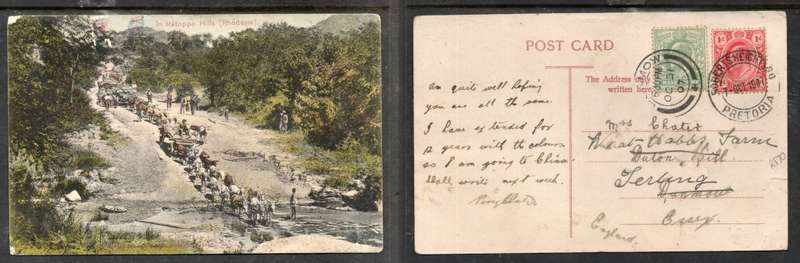 In Matoppo Hills (Rhodesia).
POST CARD
The Address only
written here
am quite well hoping
you are all the same.
I have extended for
12 years with the colours
so I am going to China
Shall write next week.
Percy
Mrs Chater
Wheat Farm
Duton Hill
Terling
Dunmow
Essex
England
1d
1d
ROBERTS HEIGHTS
PRETORIA